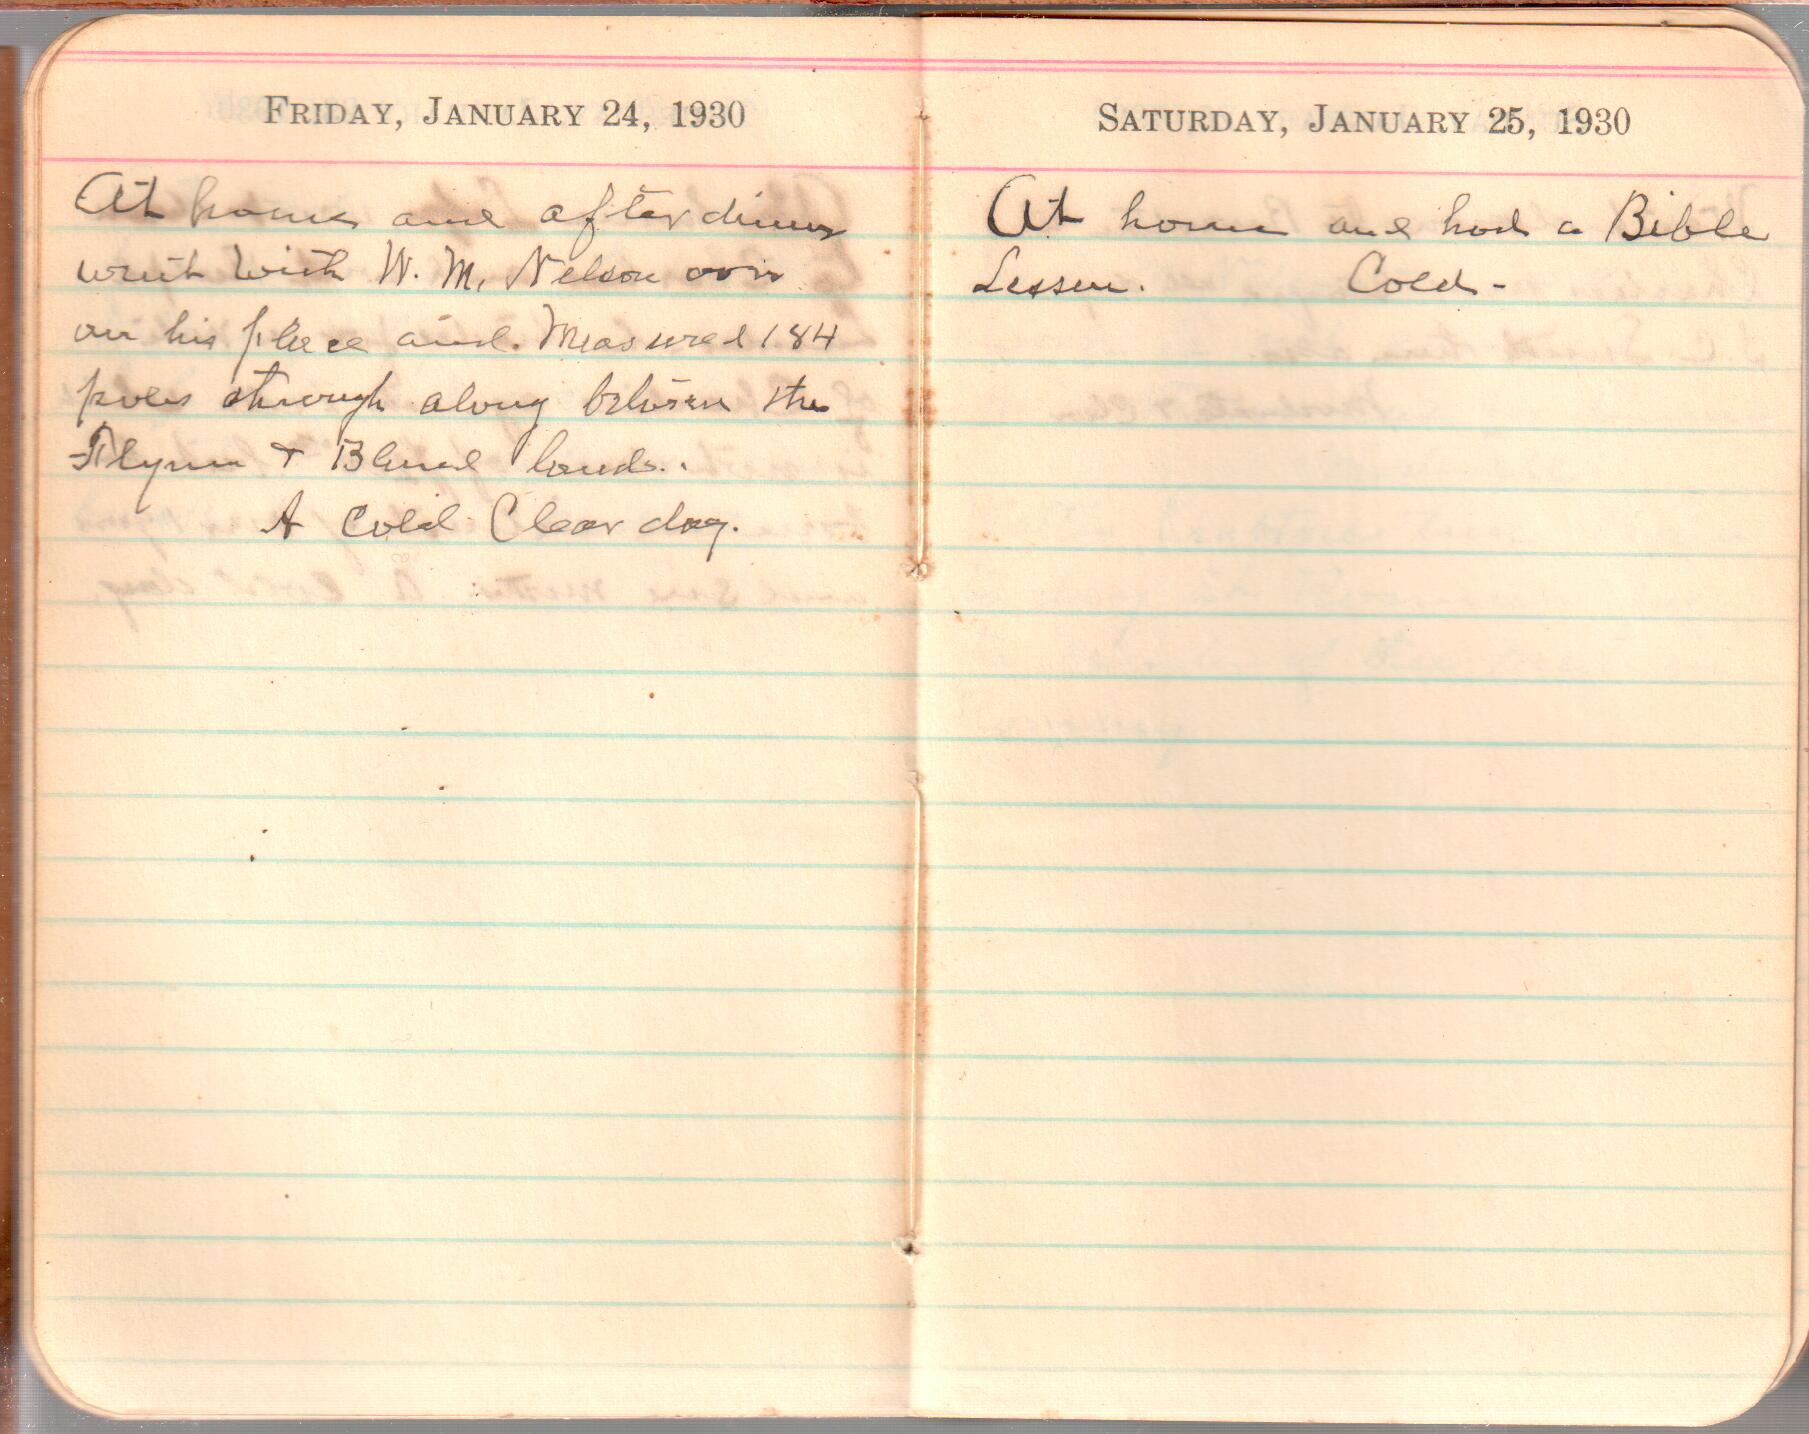 FRIDAY, JANUARY 24, 1930
At home and after dinner
went with W. M. Nelson over
on his place and. Measured 184
poles through along between the
Flynn & Bland lands.
A Cold Clear day.
SATURDAY, JANUARY 25, 1930
At home and had a Bible
Lesson. Cold-